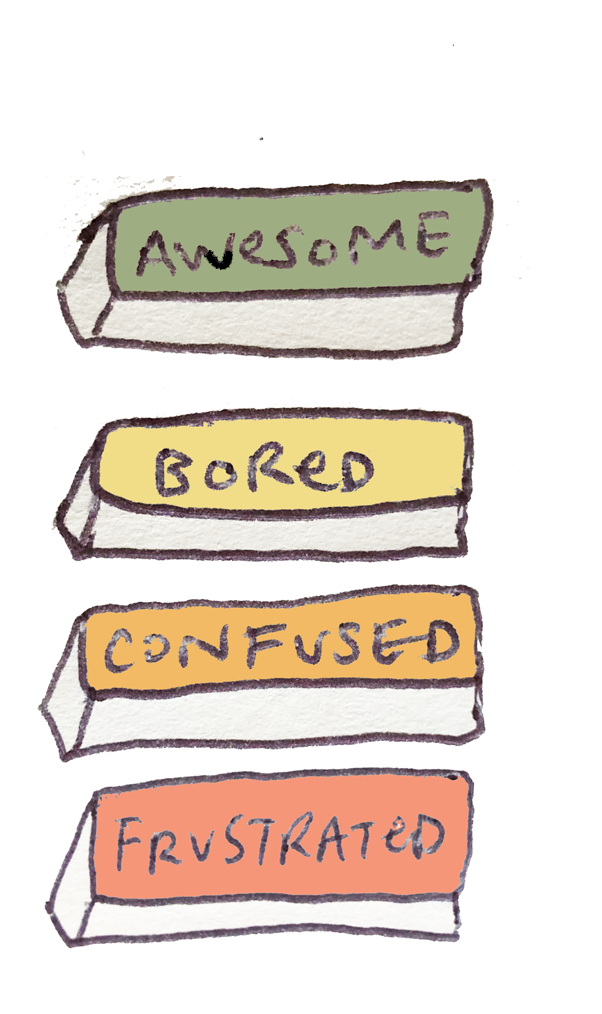 AWeSOME
BOReD
CONFUSED
FRUSTRATeD